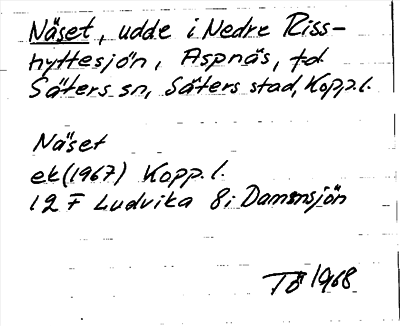 Näset, udde i Nedre Riss-
hyttesjön, Aspnäs, f.d.
Säters sn, Säters stad, Kopp.l.
Näset
ek (1967) Kopp.l.
12 F Ludvika 8i Dammsjön
TÖ 1968